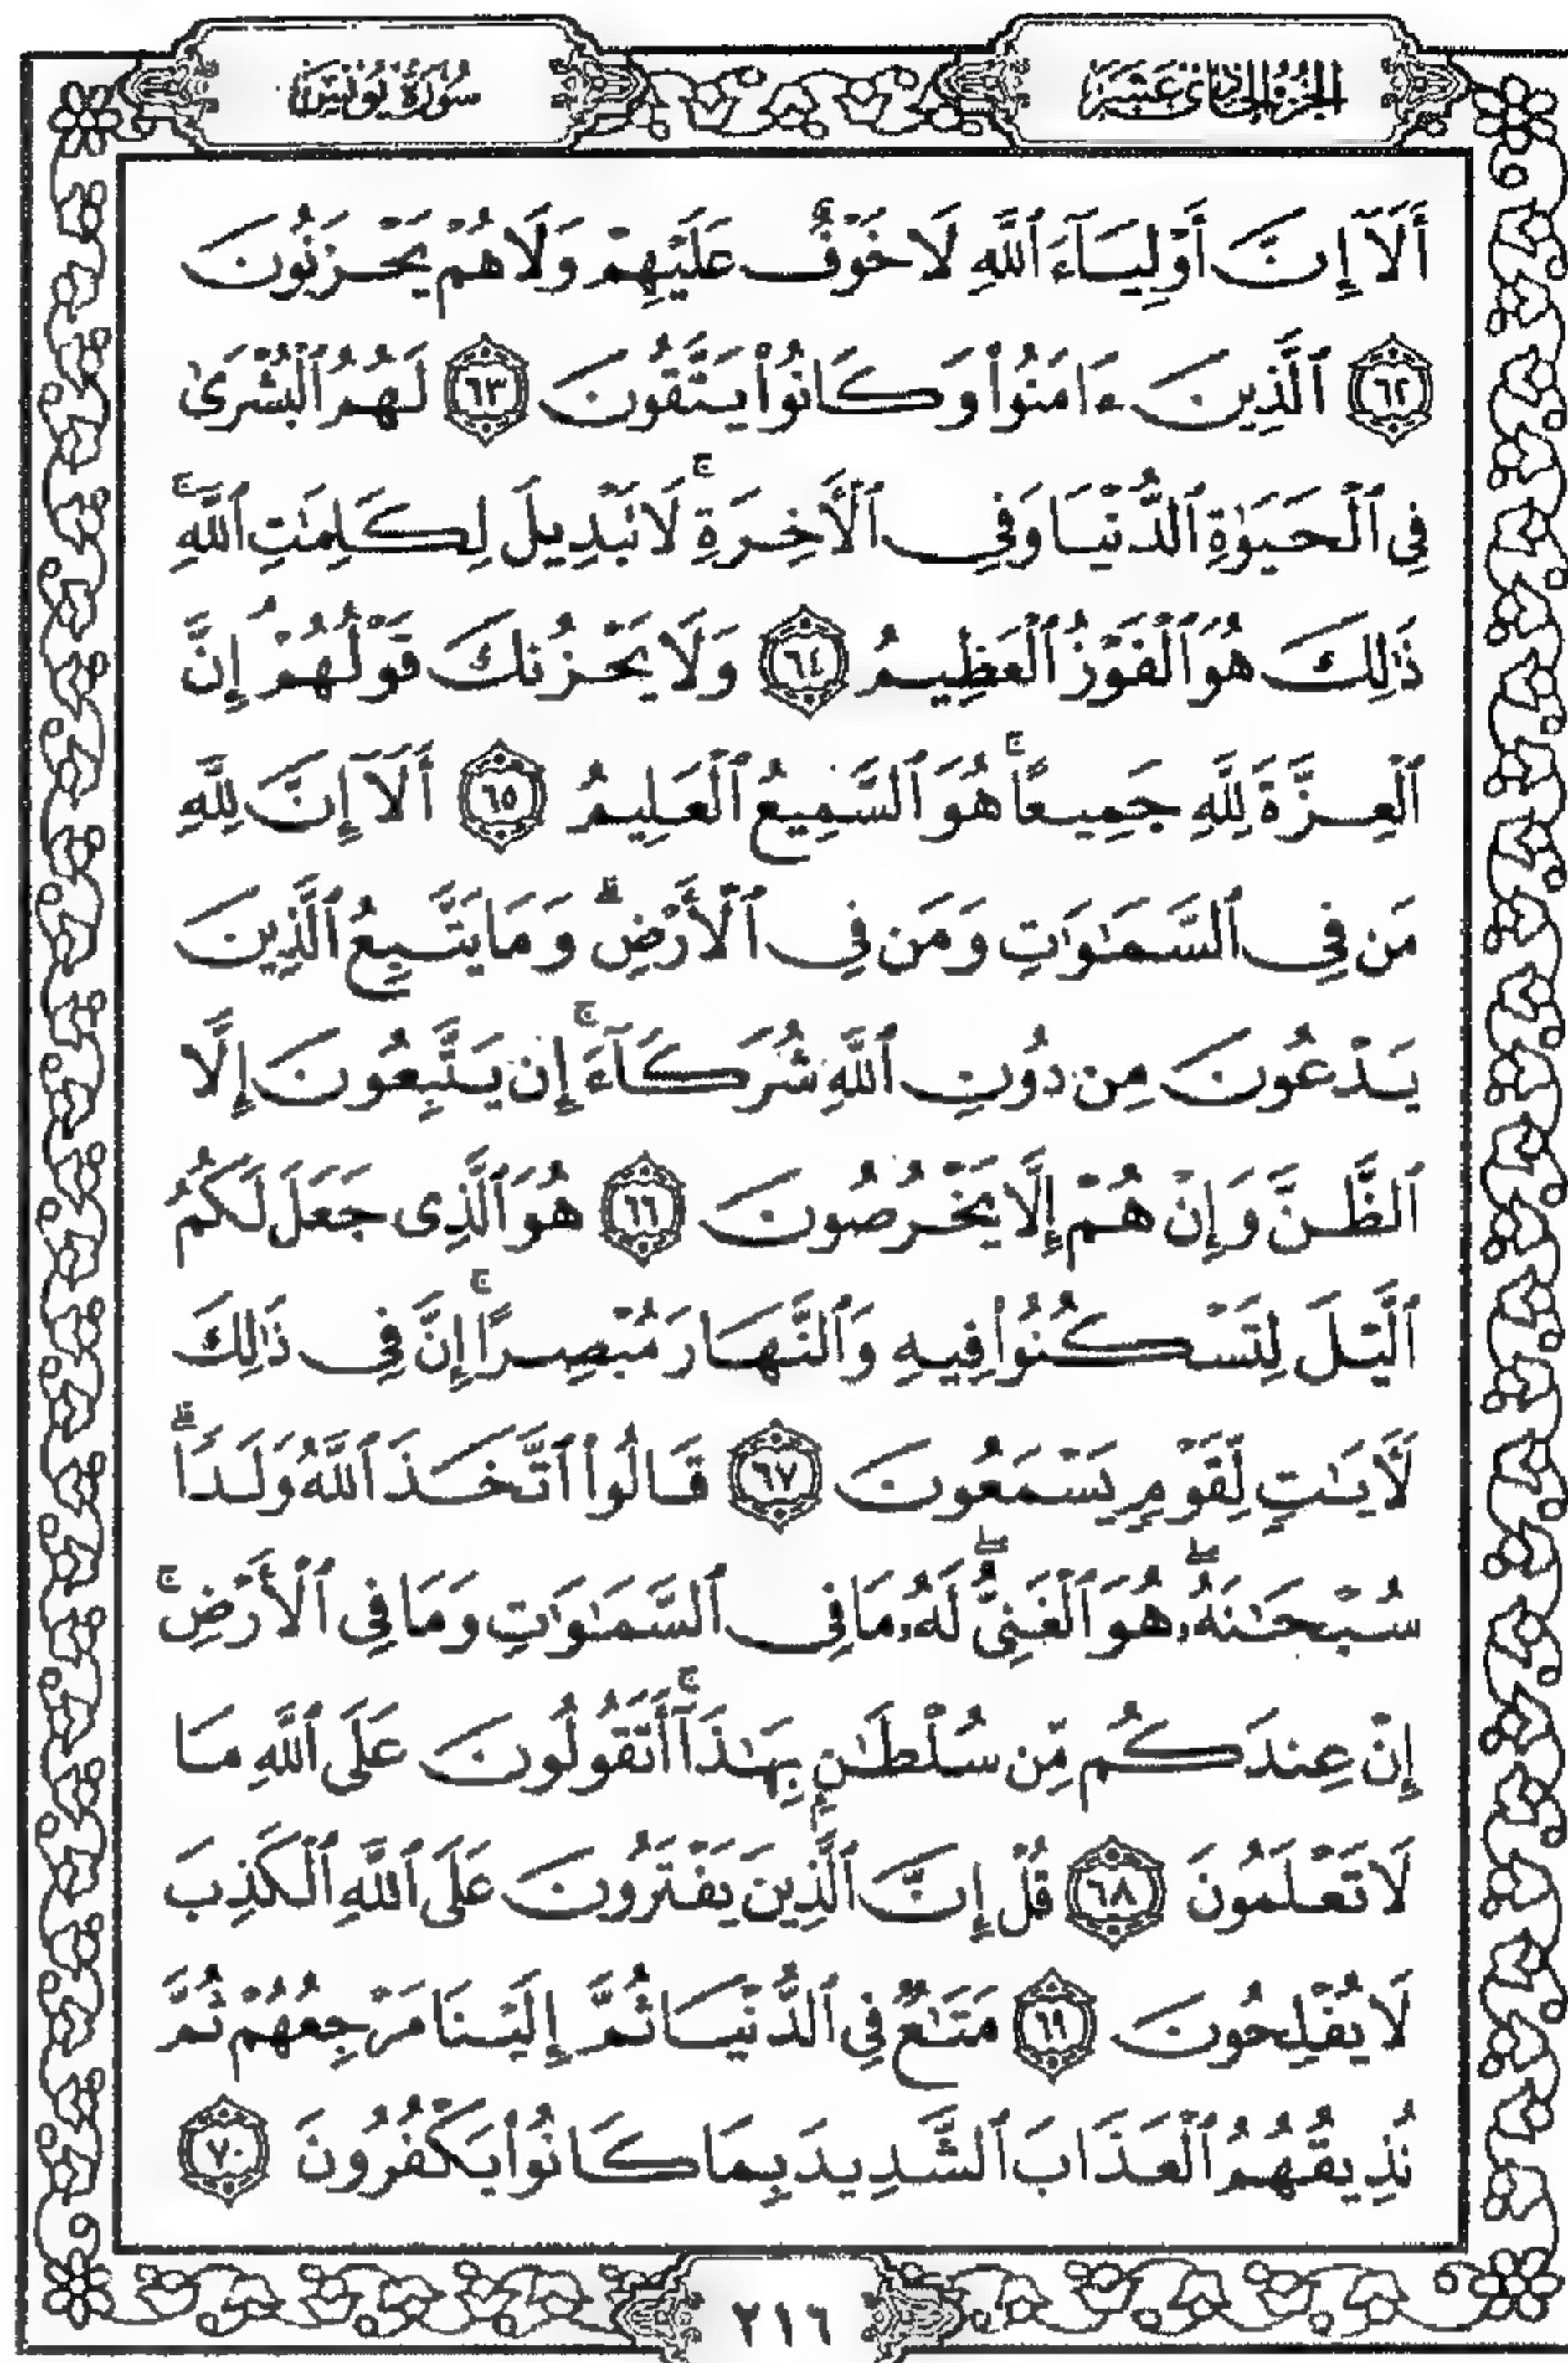 الجُزْءُ الحَادِي عَشَرَ
سُورَةُ يُونُسَ
أَلَآ إِنَّ أَوْلِيَآءَ ٱللَّهِ لَا خَوْفٌ عَلَيْهِمْ وَلَا هُمْ يَحْزَنُونَ
﴿٦٢﴾ ٱلَّذِينَ ءَامَنُوا۟ وَكَانُوا۟ يَتَّقُونَ ﴿٦٣﴾ لَهُمُ ٱلْبُشْرَىٰ
فِى ٱلْحَيَوٰةِ ٱلدُّنْيَا وَفِى ٱلْأَخِرَةِ ۚ لَا نَبْدِيلَ لِكَلِمَٰتِ ٱللَّهِ ۚ
ذَٰلِكَ هُوَ ٱلْفَوْزُ ٱلْعَظِيمُ ﴿٦٤﴾ وَلَا يَحْزُنكَ قَوْلُهُمْ ۘ إِنَّ
ٱلْعِزَّةَ لِلَّهِ جَمِيعًا ۚ هُوَ ٱلسَّمِيعُ ٱلْعَلِيمُ ﴿٦٥﴾ أَلَآ إِنَّ لِلَّهِ
مَن فِى ٱلسَّمَٰوَٰتِ وَمَن فِى ٱلْأَرْضِ ۗ وَمَا يَتَّبِعُ ٱلَّذِينَ
يَدْعُونَ مِن دُونِ ٱللَّهِ شُرَكَآءَ ۚ إِن يَتَّبِعُونَ إِلَّا
ٱلظَّنَّ وَإِنْ هُمْ إِلَّا يَخْرُصُونَ ﴿٦٦﴾ هُوَ ٱلَّذِى جَعَلَ لَكُمُ
ٱلَّيْلَ لِتَسْكُنُوا۟ فِيهِ وَٱلنَّهَارَ مُبْصِرًا ۚ إِنَّ فِى ذَٰلِكَ
لَأَيَٰتٍ لِّقَوْمٍ يَسْمَعُونَ ﴿٦٧﴾ قَالُوا۟ ٱتَّخَذَ ٱللَّهُ وَلَدًا ۗ
سُبْحَٰنَهُۥ ۖ هُوَ ٱلْغَنِىُّ ۖ لَهُۥ مَا فِى ٱلسَّمَٰوَٰتِ وَمَا فِى ٱلْأَرْضِ ۚ
إِنْ عِندَكُم مِّن سُلْطَٰنٍۭ بِهَٰذَآ ۚ أَتَقُولُونَ عَلَى ٱللَّهِ مَا
لَا تَعْلَمُونَ ﴿٦٨﴾ قُلْ إِنَّ ٱلَّذِينَ يَفْتَرُونَ عَلَى ٱللَّهِ ٱلْكَذِبَ
لَا يُفْلِحُونَ ﴿٦٩﴾ مَتَٰعٌ فِى ٱلدُّنْيَا ثُمَّ إِلَيْنَا مَرْجِعُهُمْ ثُمَّ
نُذِيقُهُمُ ٱلْعَذَابَ ٱلشَّدِيدَ بِمَا كَانُوا۟ يَكْفُرُونَ ﴿٧٠﴾
٢١٦